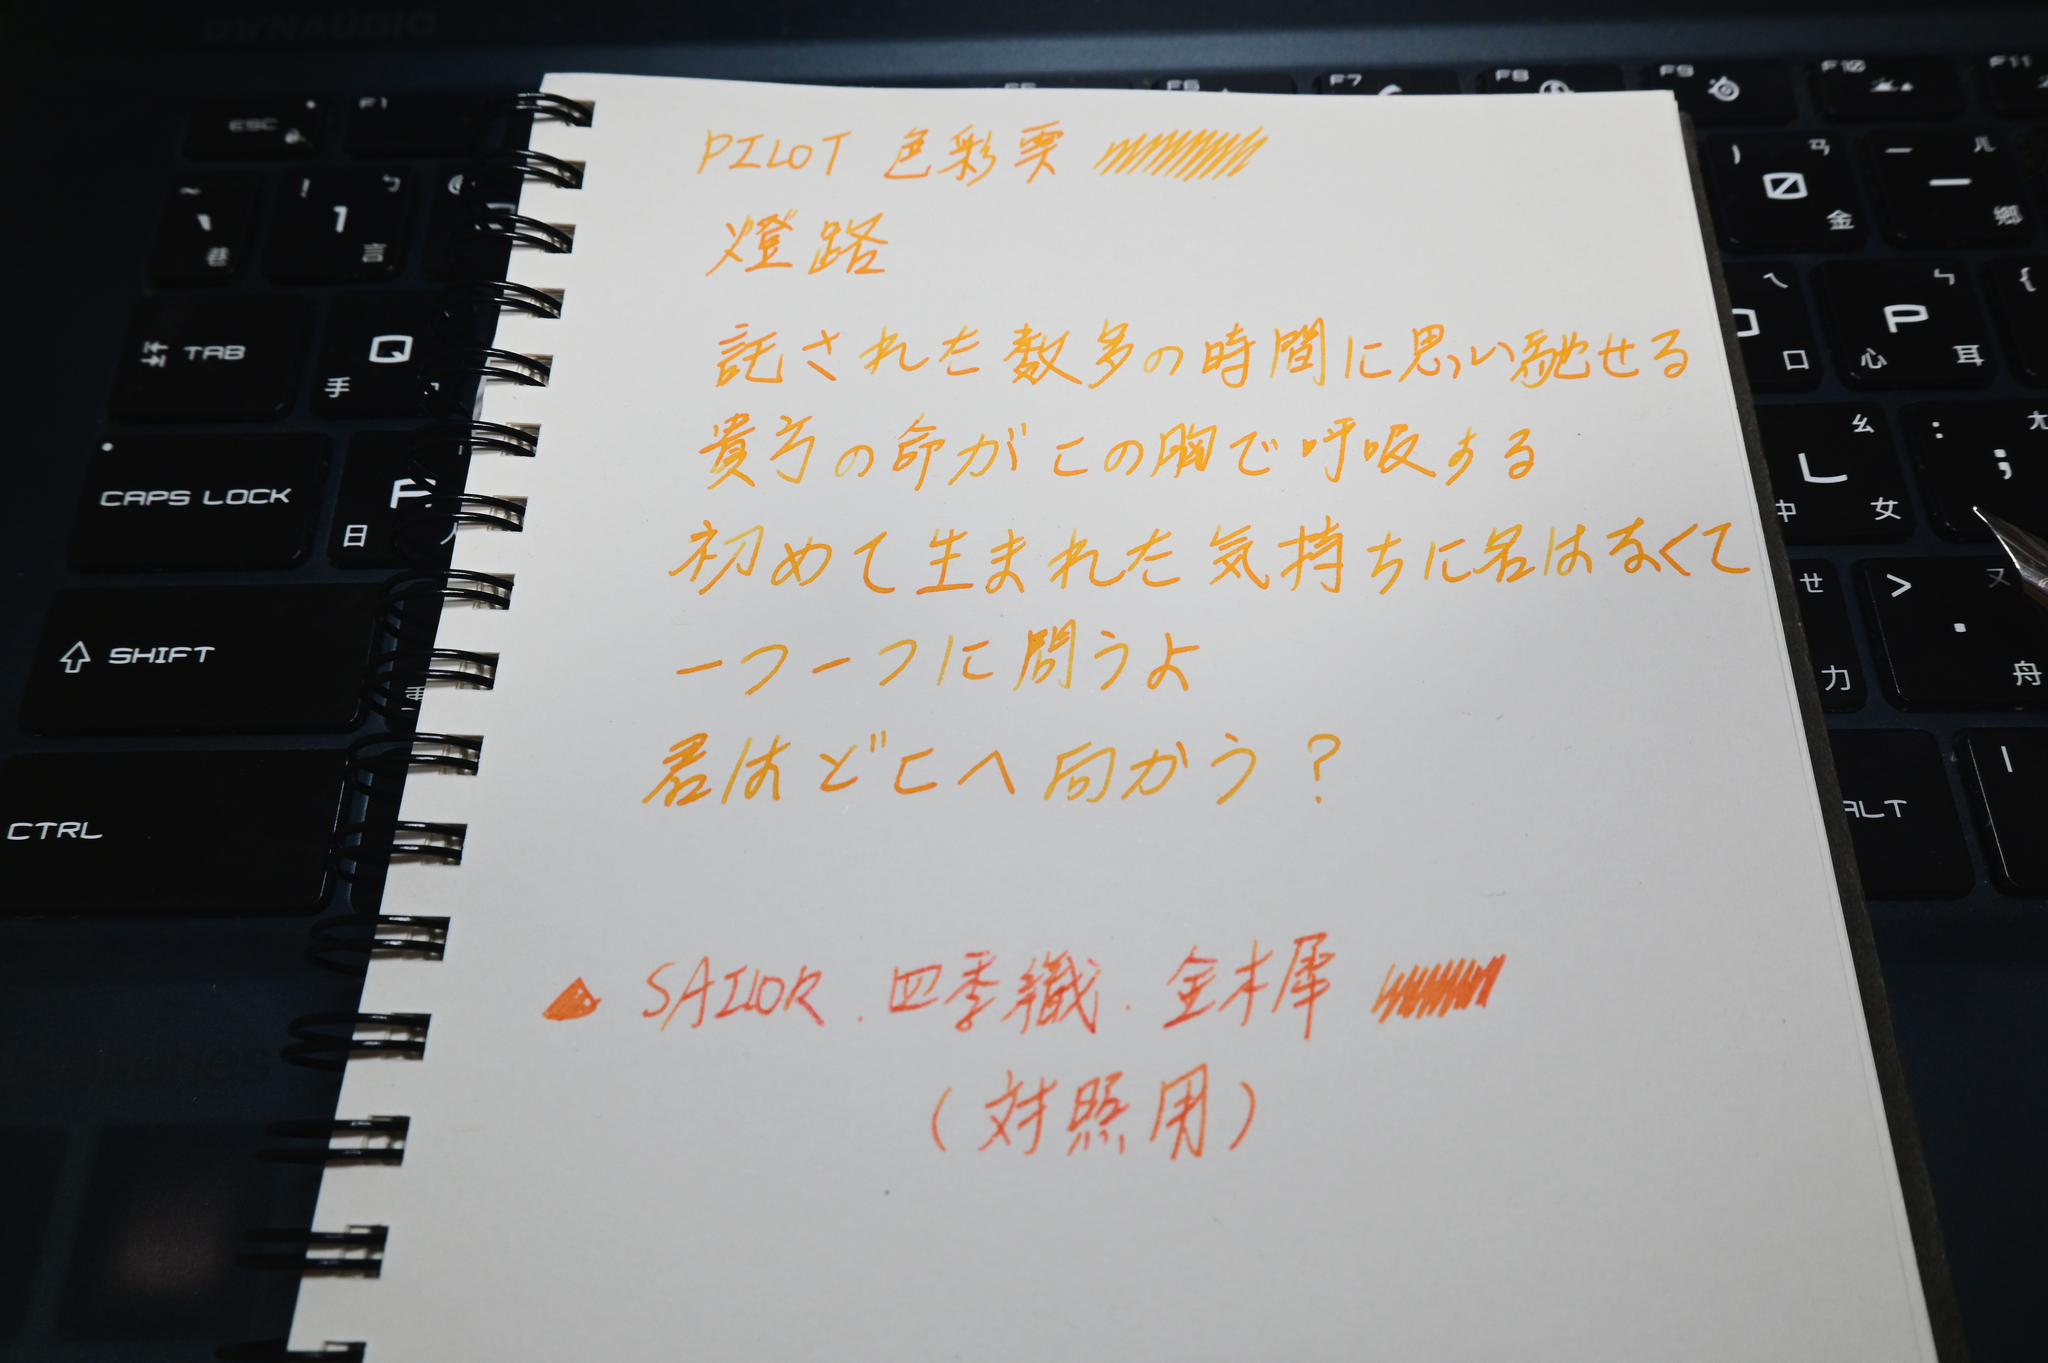 DYNAUDIO
ESC
F1
F5
F6
F7
F8
F9
F10
F11
~
、
巷
!
1
ㄅ
言
)
0
ㄢ
金
ㄦ
鄉
TAB
Q
手
ㄟ
口
P
ㄣ
心
耳
{
CAPS LOCK
日
ㄠ
L
中
女
:
;
ㄤ
SHIFT
ㄝ
力
>
.
ㄡ
舟
CTRL
ALT
PILOT 色彩栗
燈路
託された数多の時間に思い馳せる
貴方の命がこの胸で呼吸する
初めて生まれた気持ちに名はなくて
一つ一つに問うよ
君はどこへ向かう？
SAILOR . 四季織 . 金木犀
（対照用）